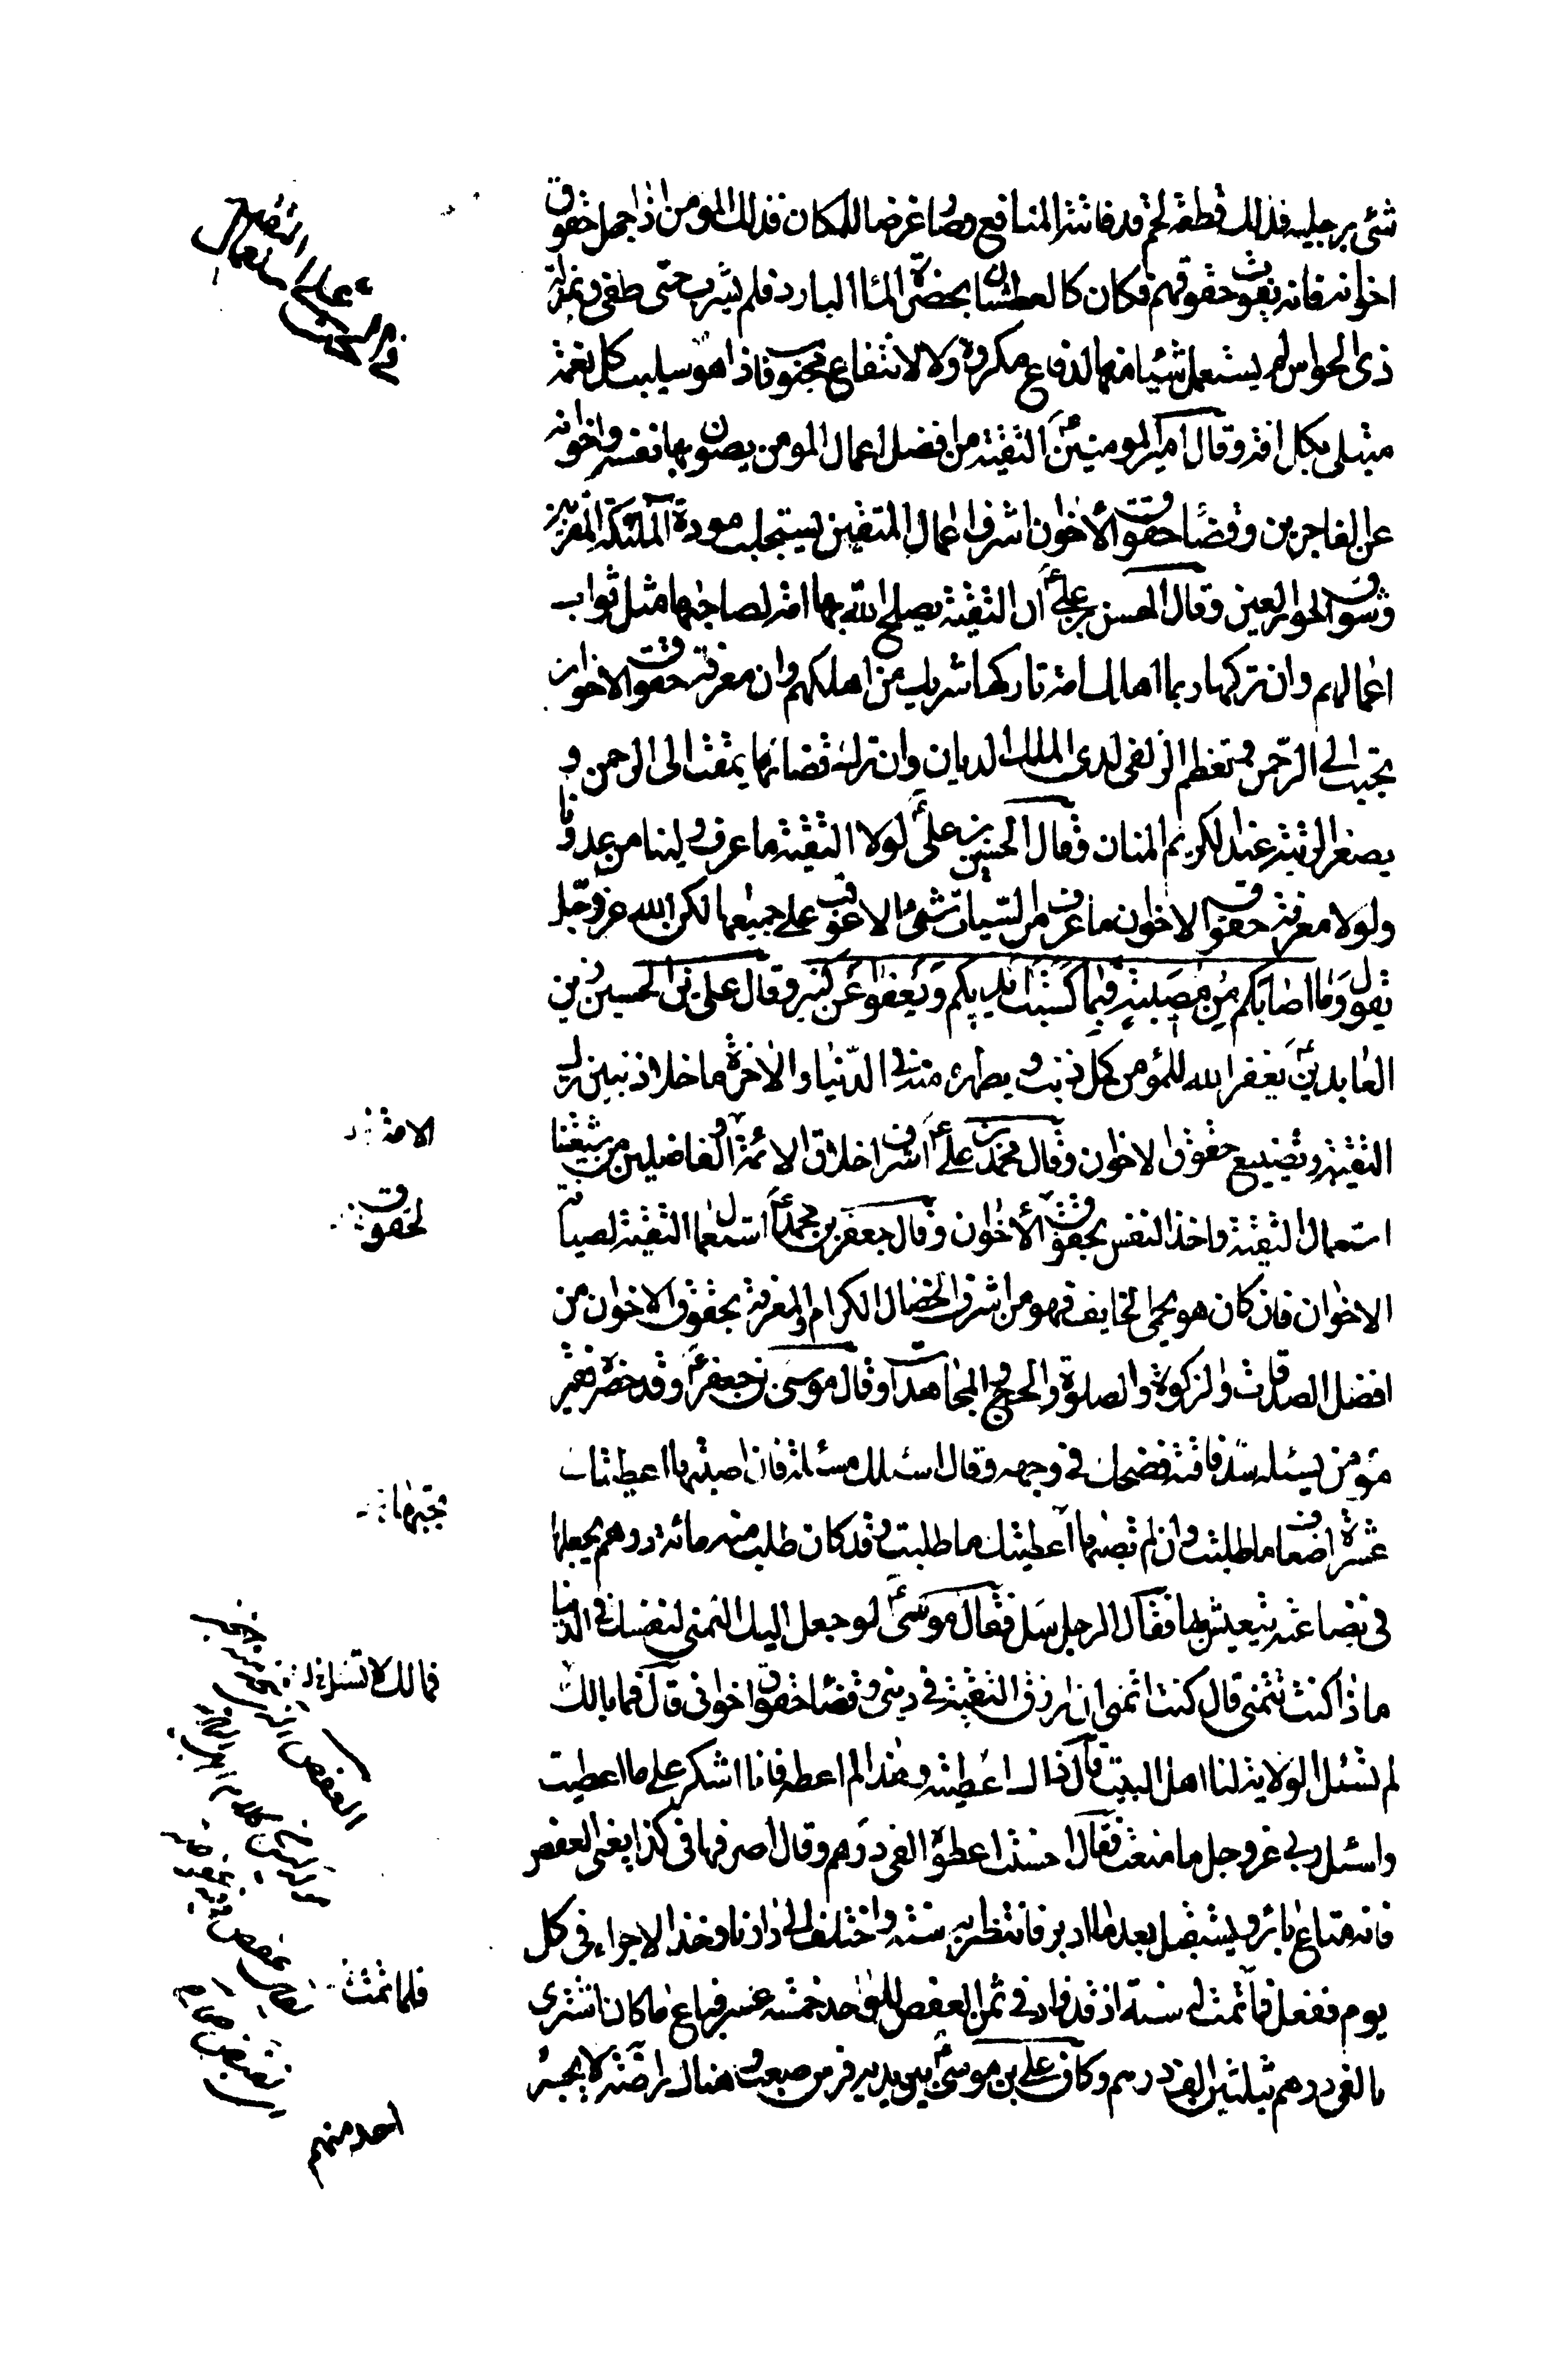 شئ برجليه فذلك قطعة لحم قد فاتته المنافع وصار غرضا للمكان فذلك المؤمن اذا جهل حقوق
اخوانه فانه يفوت حقوقهم فكان كالعطشان بحضرة الماء البارد فلم يشرب حتى طفى وبمنزلة
ذى الحواس لم يستعمل شيئا منها لدفاع مكروه ولا لانتفاع محبوب فاذا هو سليب كل نعمة
مبتلى بكل افة وقال امير المومنين ع التقية من افضل اعمال المومن يصون بها نفسه واخوانه
عن الفاجرين وقضاء حقوق الاخوان اشرف اعمال المتقين يستجلب مودة الملئكة المقربين
وشوق الحور العين وقال الحسن بن على ع ان التقية يصلح الله بها امة لصاحبها مثل ثواب
اعمالهم وان تركها ربما اهلك امة تاركها شريك من اهلكهم وان معرفة حقوق الاخوان
تحبب الى الرحمن وتعظم الزلفى لدى الملك الديان وان ترك قضائها يمقت الى الرحمن و
يصغر الرتبة عند الكريم المنان وقال الحسين بن على ع لولا التقية ما عرف ولينا من عدونا
ولولا معرفة حقوق الاخوان ما عرف من السيات شئ الا عوقب على جميعها لكن الله عز وجل
يقول وما اصابكم من مصيبة فبما كسبت ايديكم ويعفوا عن كثير وقال على بن الحسين زين
العابدين ع يغفر الله للمؤمن كل ذنب ويطهره منه فى الدنيا والاخرة ما خلا ذنبين ترك
التقية وتضييع حقوق الاخوان وقال محمد بن على ع اشرف اخلاق الائمة والفاضلين من شيعتنا
استعمال التقية واخذ النفس بحقوق الاخوان وقال جعفر بن محمد ع استعمال التقية لصيانة
الاخوان فان كان هو يحمى الخايف فهو من اشرف الخصال الكرام والمعرفة بحقوق الاخوان من
افضل الصدقات والزكوة والصلوة والحج والمجاهدات وقال موسى بن جعفر ع وقد حضره فقير
مؤمن يسئله سد فاقته فضحك فى وجهه وقال اسئلك مسئلة فان اصبتها اعطيتك
عشرة اضعاف ما طلبت وان لم تصبها اعطيتك ما طلبت وقد كان طلب منه مائة درهم يجعلها
فى بضاعته يتعيش بها فقال الرجل سل فقال موسى ع لو جعل اليك التمنى لنفسك فى الدنيا
ماذا كنت تتمنى قال كنت اتمنى ان ارزق التقية فى دينى وقضاء حقوق اخوانى قال فما بالك
لم تسئل الولاية لنا اهل البيت قال ذاك اعطيته وهذا لم اعطه فانا اشكر على ما اعطيت
واسئل ربى عز وجل ما منعت فقال احسنت اعطوه الفى درهم وقال اصرفها فى كذا يعنى العفص
فانه متاع بائر ويستقبل بعد ما ادبر فانتظر به سنة واختلف الى دارنا وخذ الاجراء فى كل
يوم ففعل فما تمت له سنة اذ قد زاد فى ثمن العفص للواحد خمسة عشر فباع ما كان اشترى
بالفى درهم بثلثين الف درهم وكان على بن موسى ع بين يديه فرس صعب وهناك راضة لا يجسر
احد منهم
فى الحث
على استعمال التقية
الامة
لحقوق
تجبرها
فمالك لا تسئل
فلما تمت